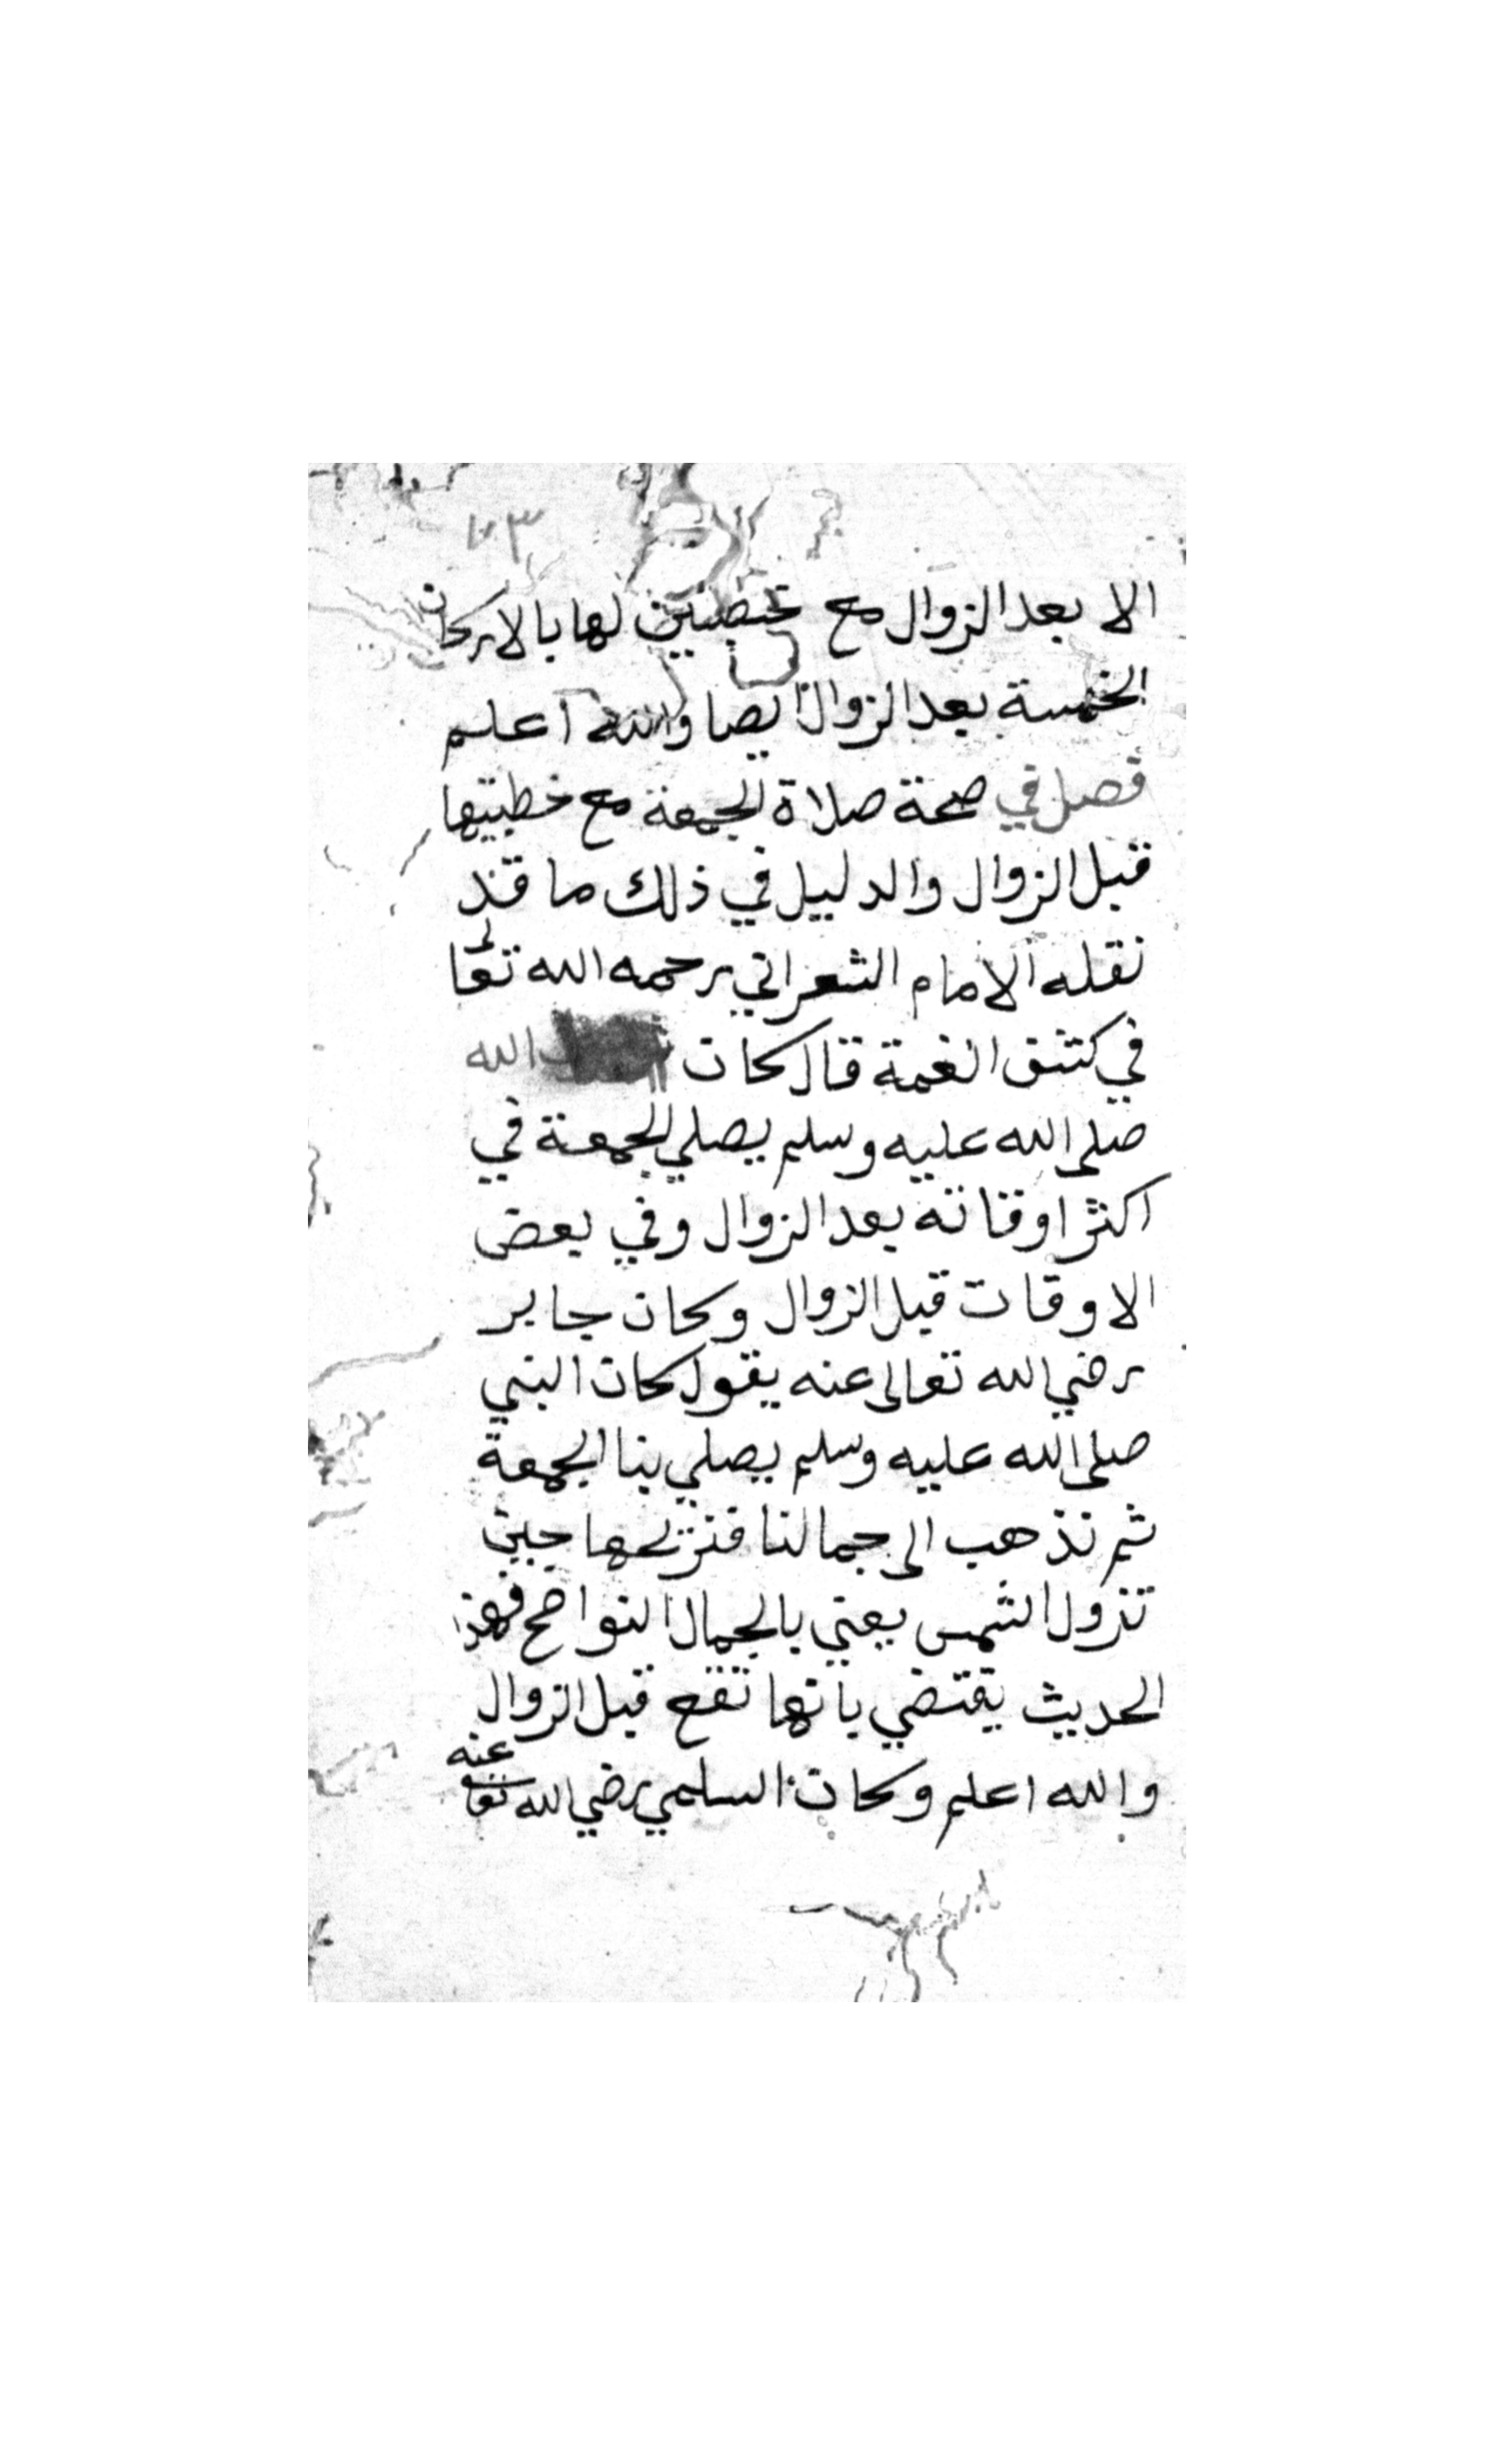 ٢٣
الا بعد الزوال مع لها بالاركان
الخمسة بعد الزوال ايضا والله اعلم
فصل في صحة صلاة الجمعة مع خطبتيها
قبل الزوال والدليل في ذلك ما قد
نقله الامام الشعراني رحمه الله تعالى
في كشف الغمة قال كان الله
صلى الله عليه وسلم يصلي الجمعة في
اكثر اوقاته بعد الزوال وفي بعض
الاوقات قبل الزوال وكان جابر
رضي الله تعالى عنه يقول كان النبي
صلى الله عليه وسلم يصلي بنا الجمعة
ثم نذهب الى جمالنا فنزيحها حين
تزول الشمس يعني بالجمال النواضح فهذا
الحديث يقتضي بانها تقع قبل الزوال
والله اعلم وكان السلمي رضي الله تعا عنه